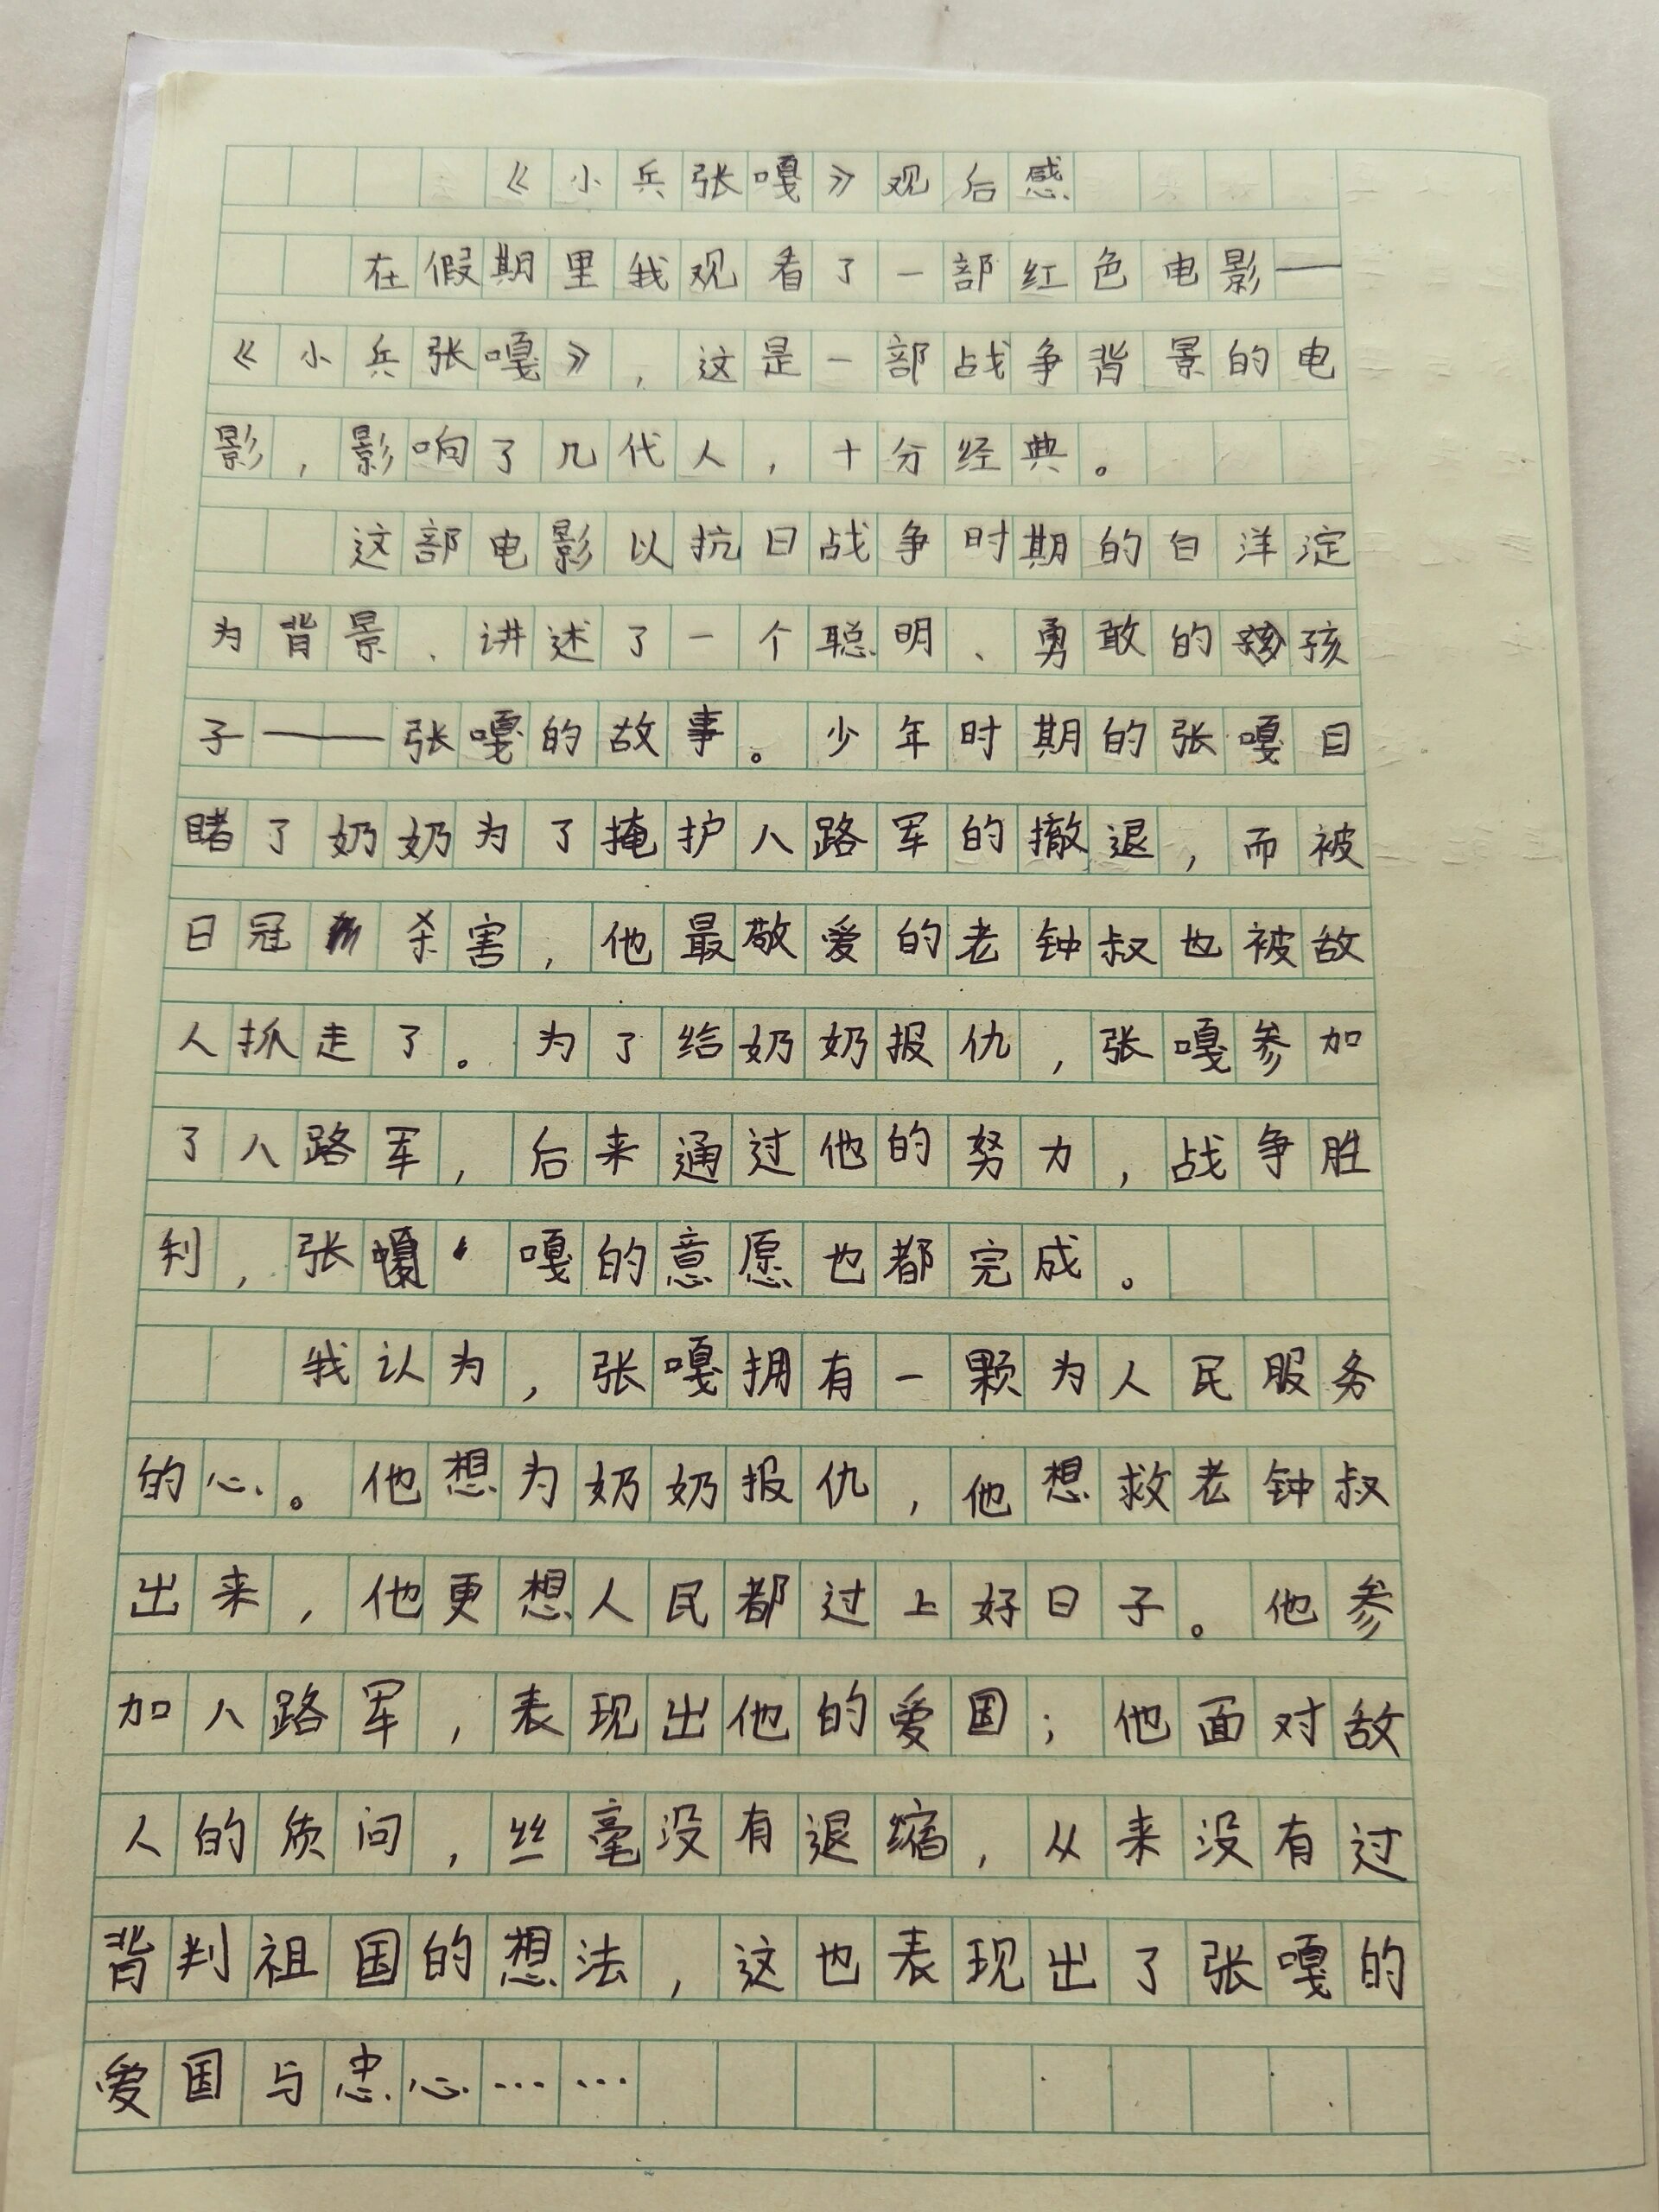 《小兵张嘎》观后感
在假期里我观看了一部红色电影——
《小兵张嘎》,这是一部战争背景的电
影,影响了几代人,十分经典。
这部电影以抗日战争时期的白洋淀
为背景、讲述了一个聪明、勇敢的孩
子——张嘎的故事。少年时期的张嘎目
睹了奶奶为了掩护八路军的撤退,而被
日冠杀害,他最敬爱的老钟叔也被敌
人抓走了。为了给奶奶报仇,张嘎参加
了八路军,后来通过他的努力,战争胜
利,张嘎的意愿也都完成。
我认为,张嘎拥有一颗为人民服务
的心。他想为奶奶报仇,他想救老钟叔
出来,他更想人民都过上好日子。他参
加八路军,表现出他的爱国;他面对敌
人的质问,丝毫没有退缩,从来没有过
背判祖国的想法,这也表现出了张嘎的
爱国与忠心……